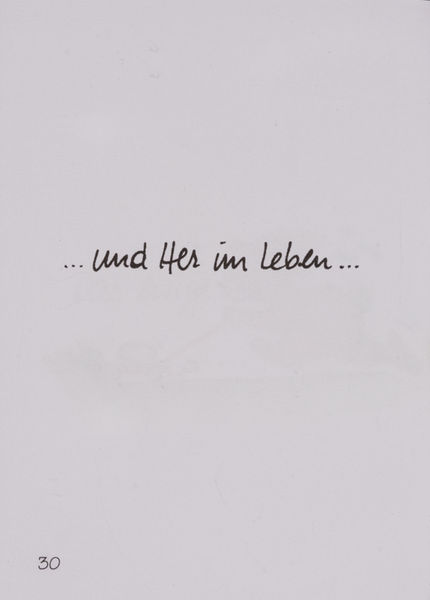 ... und Her im Leben ...
30